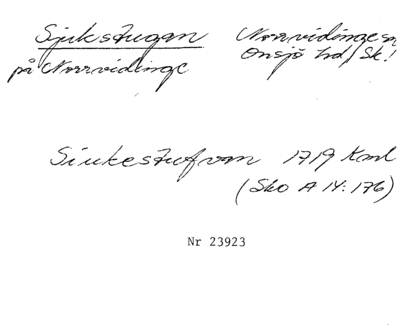 Sjukstugan Norrvidinge sn
på Norrvidinge Onsjö hd, Sk!
Siukestufvan 1719 Kml
(Sko A 14:176)
Nr 23923